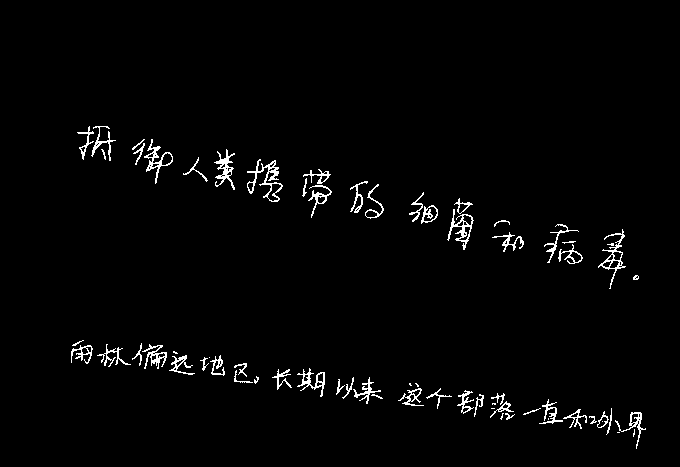 抵御人类携带的细菌和病毒。
雨林偏远地区,长期以来这个部落一直和外界